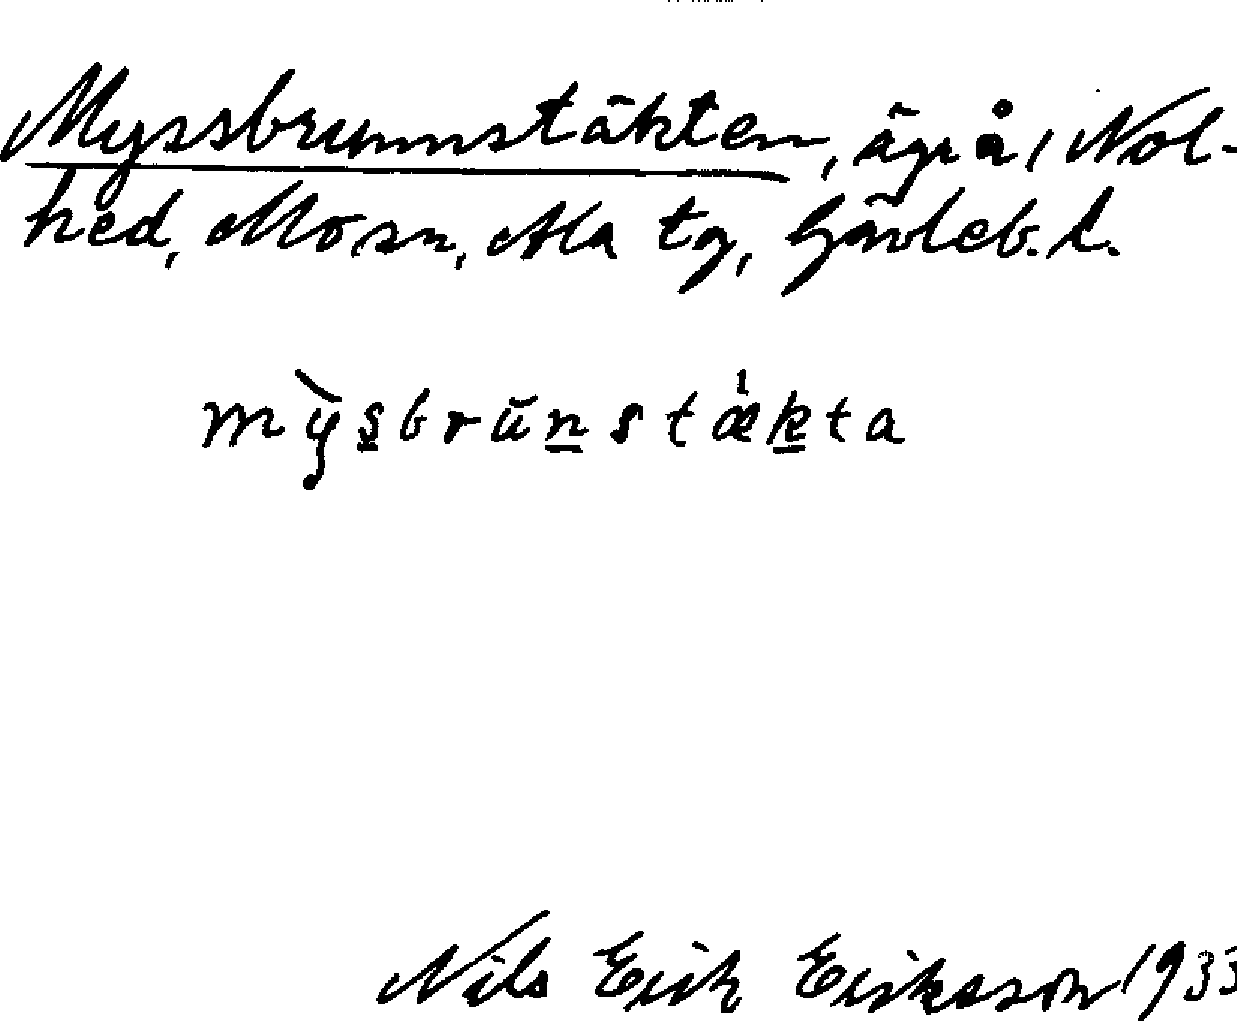 Myssbrunnstäkten, ägr å, Nol-
hed, Mo sn, Ala tg, Gävleb. l.
mỳs̲brŭn̲stǽk̲ta
Nils Erik Eriksson 1933